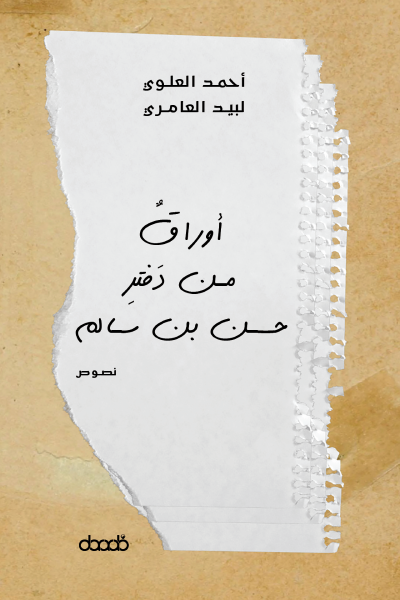 أحمد العلوي
لبيد العامري
أوراقٌ
من دَفترِ
حسن بن سالم
نصوص